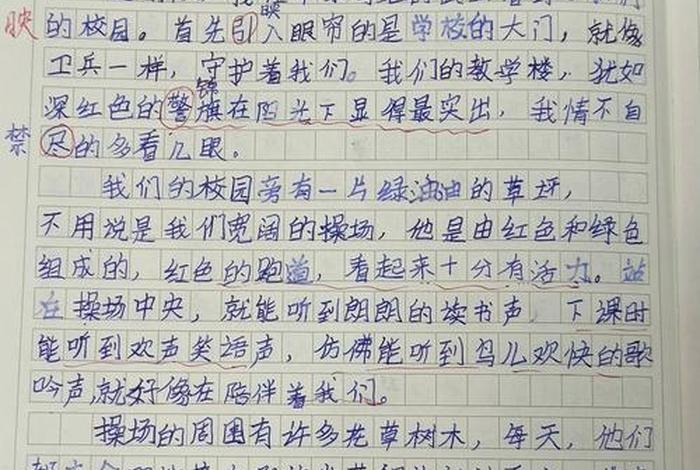 映
的校园。首先引入眼帘的是学校的大门，就像
映
卫兵一样，守护着我们。我们的教学楼，犹如
锦
深红色的警旗在阳光下显得最突出，我情不自
禁
尽的多看几眼。
我们的校园旁有一片绿油油的草坪，
不用说是我们宽阔的操场，他是由红色和绿色
组成的，红色的跑道，看起来十分有活力。站
在操场中央，就能听到朗朗的读书声，下课时
能听到欢声笑语声，仿佛能听到鸟儿欢快的歌
吟声，就好像在陪伴着我们。
操场的周围有许多花草树木，每天，他们